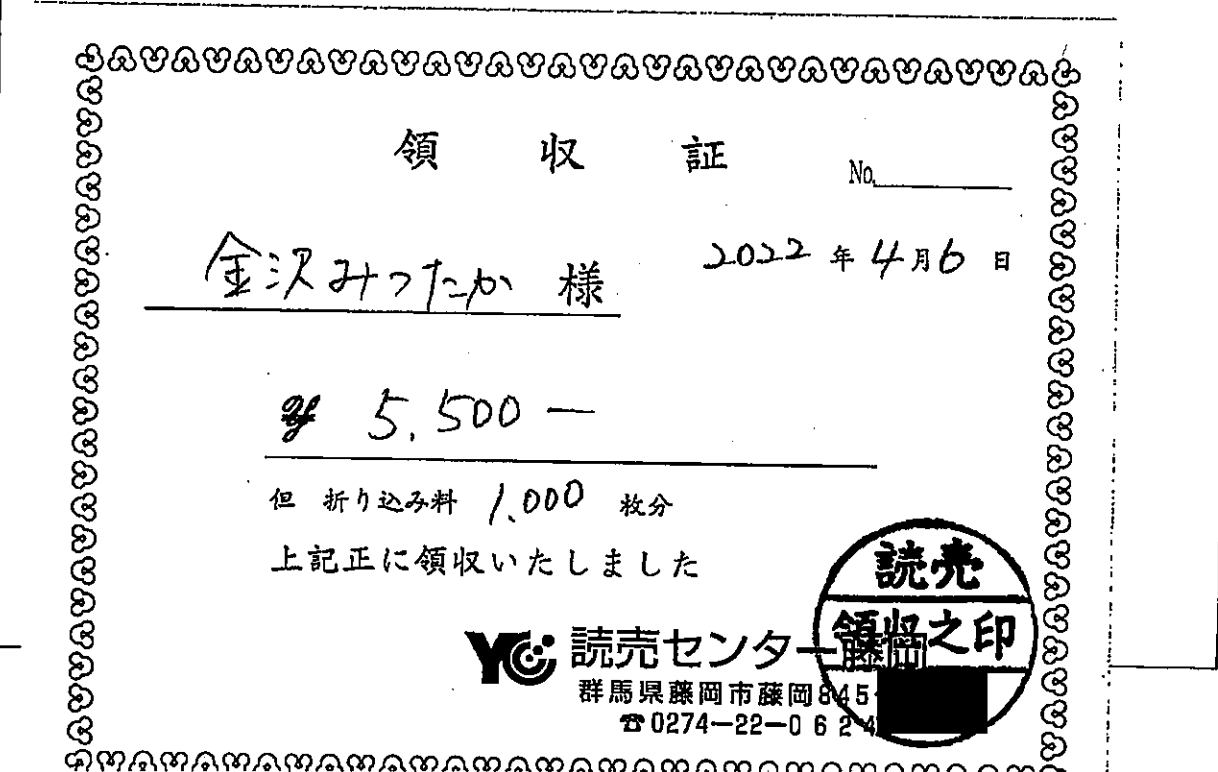 領収証
No.
2022年4月6日
金沢みつたか 様
¥ 5,500 —
但 折り込み料 1,000 枚分
上記正に領収いたしました
読売
領収之印
YC 読売センター藤岡
群馬県藤岡市藤岡845
☎0274-22-0624